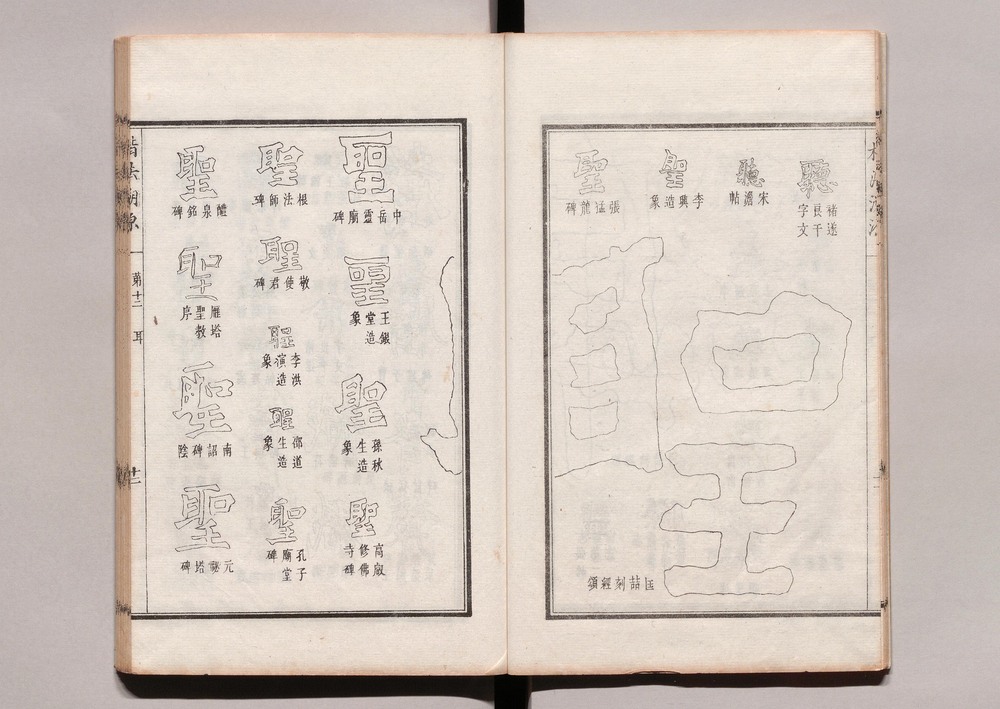 聽
褚遂良千字文
聽
宋儋帖
聖
李興造象
聖
張猛龍碑
聖
匡喆刻經頌
聖
中岳靈廟碑
聖
王銀堂造象
聖
孫秋生造象
聖
高叡修佛寺碑
聖
根法師碑
聖
敬使君碑
聖
李洪演造象
聖
邵道生造象
聖
孔子廟堂碑
聖
醴泉銘碑
聖
雁塔聖教序
聖
南詔碑陰
聖
元祕塔碑
楷法溯源
第十二 耳